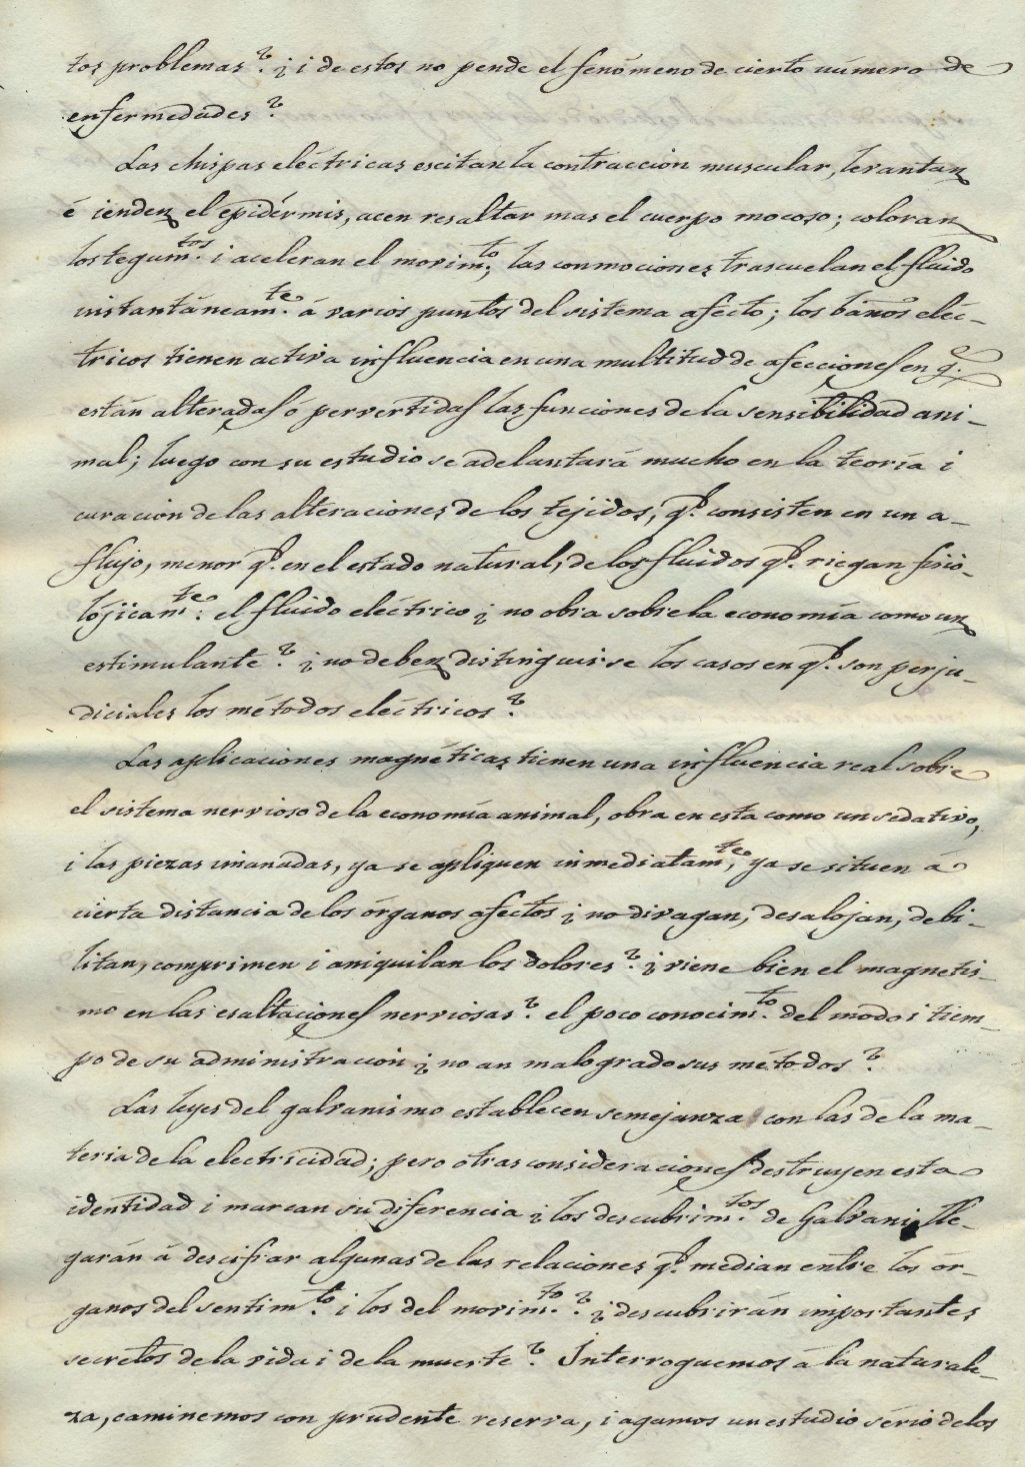 tos problemas? ¿i de estos no pende el fenómeno de cierto número de
enfermedades?
Las chispas eléctricas escitan la contracción muscular, levantan
é ienden el epidérmis, acen resaltar mas el cuerpo mocoso; coloran
los tegum.tos i aceleran el movim.to; las conmociones trascuelan el fluido
instantáneam.te á varios puntos del sistema afecto; los baños eléc-
tricos tienen activa influencia en una multitud de afecciones en q.
están alteradas ó pervertidas las funciones de la sensibilidad ani-
mal; luego con su estudio se adelantará mucho en la teoría i
curacion de las alteraciones de los tejidos, q.e consisten en un a-
flujo, menor q.e en el estado natural, de los fluidos q.e riegan fisio-
lójicam.te: el fluido eléctrico ¿no obra sobre la economía como un
estimulante? ¿no deben distinguirse los casos en q.e son perju-
diciales los métodos eléctricos?
Las aplicaciones magnéticas tienen una influencia real sobre
el sistema nervioso de la economía animal, obra en esta como un sedativo,
i las piezas imanadas, ya se apliquen inmediatam.te, ya se situen á
cierta distancia de los órganos afectos ¿no divagan, desalojan, debi-
litan, comprimen i aniquilan los dolores? ¿viene bien el magnetis-
mo en las esaltaciones nerviosas? el poco conocim.to del modo i tiem-
po de su administracion ¿no an malogrado sus métodos?
Las leyes del galvanismo establecen semejanza con las de la ma-
teria de la electricidad; pero otras consideraciones destruyen esta
identidad i marcan su diferencia ¿los descubrim.tos de Galvani lle-
garán á descifrar algunas de las relaciones q.e median entre los ór-
ganos del sentim.to i los del movim.to? ¿descubrirán importantes
secretos de la vida i de la muerte? Interroguemos á la naturale-
za, caminemos con prudente reserva, i agamos un estudio sério de los